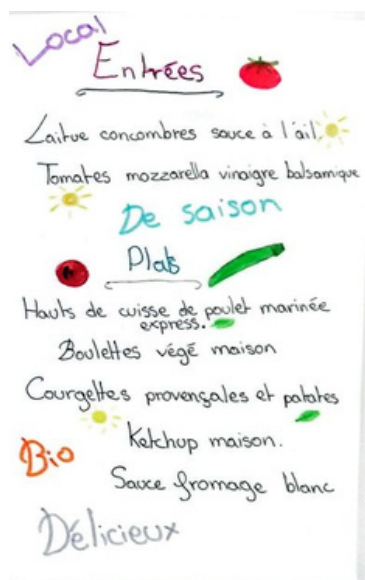 Local
Entrées
Laitue concombres sauce à l'ail.
Tomates mozzarella vinaigre balsamique
De saison
Plats
Hauts de cuisse de poulet marinée
express.
Boulettes végé maison
Courgettes provençales et patates
Ketchup maison.
Bio
Sauce fromage blanc
Délicieux